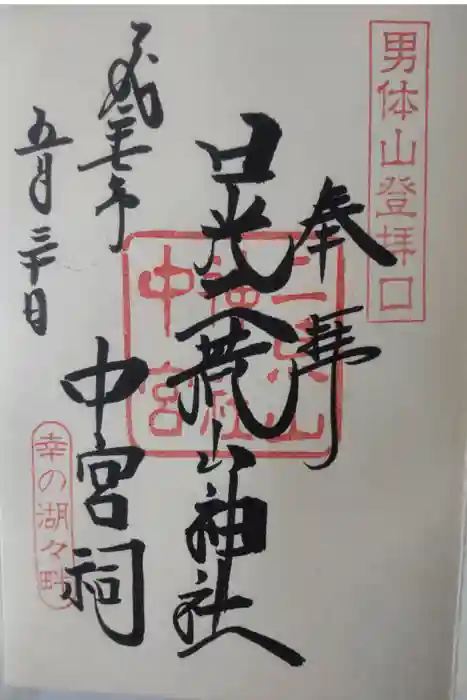 男体山登拝口
奉拝
日光二荒山神社
中宮祠
二荒山
神社
中宮
平成年
五月三十日
幸の湖々畔